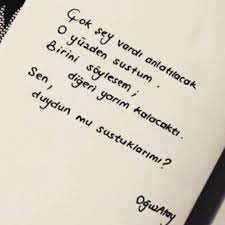 Çok şey vardı anlatılacak
O yüzden sustum.
Birini söylesem;
diğeri yarım kalacaktı.
Sen,
duydun mu sustuklarımı?
Oğuz Atay